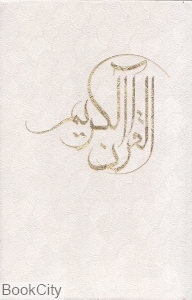 القرآن الكريم
BookCity